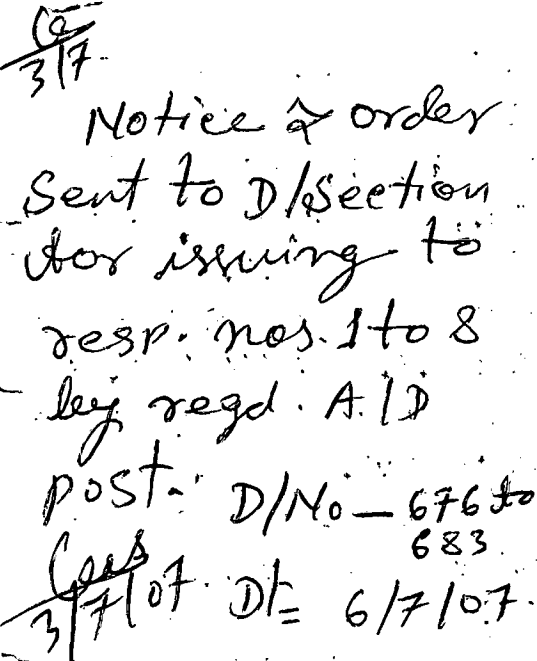 3/7
Notice & order
Sent to D/Section
for issuing to
resp. nos. 1 to 8
by regd. A/D
post. D/No – 676 to
683.
3/7/07. Dt= 6/7/07.